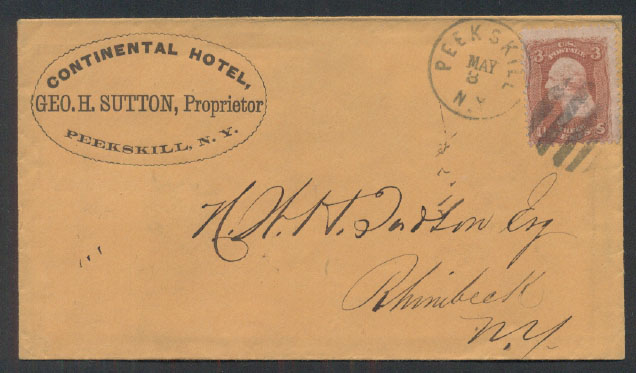 CONTINENTAL HOTEL,
GEO. H. SUTTON, Proprietor
PEEKSKILL, N. Y.
PEEKSKILL
MAY
8
N.Y.
U.S.
POSTAGE
3 3
N. W. H. Judson Esq
Rhinibeck
N.Y.